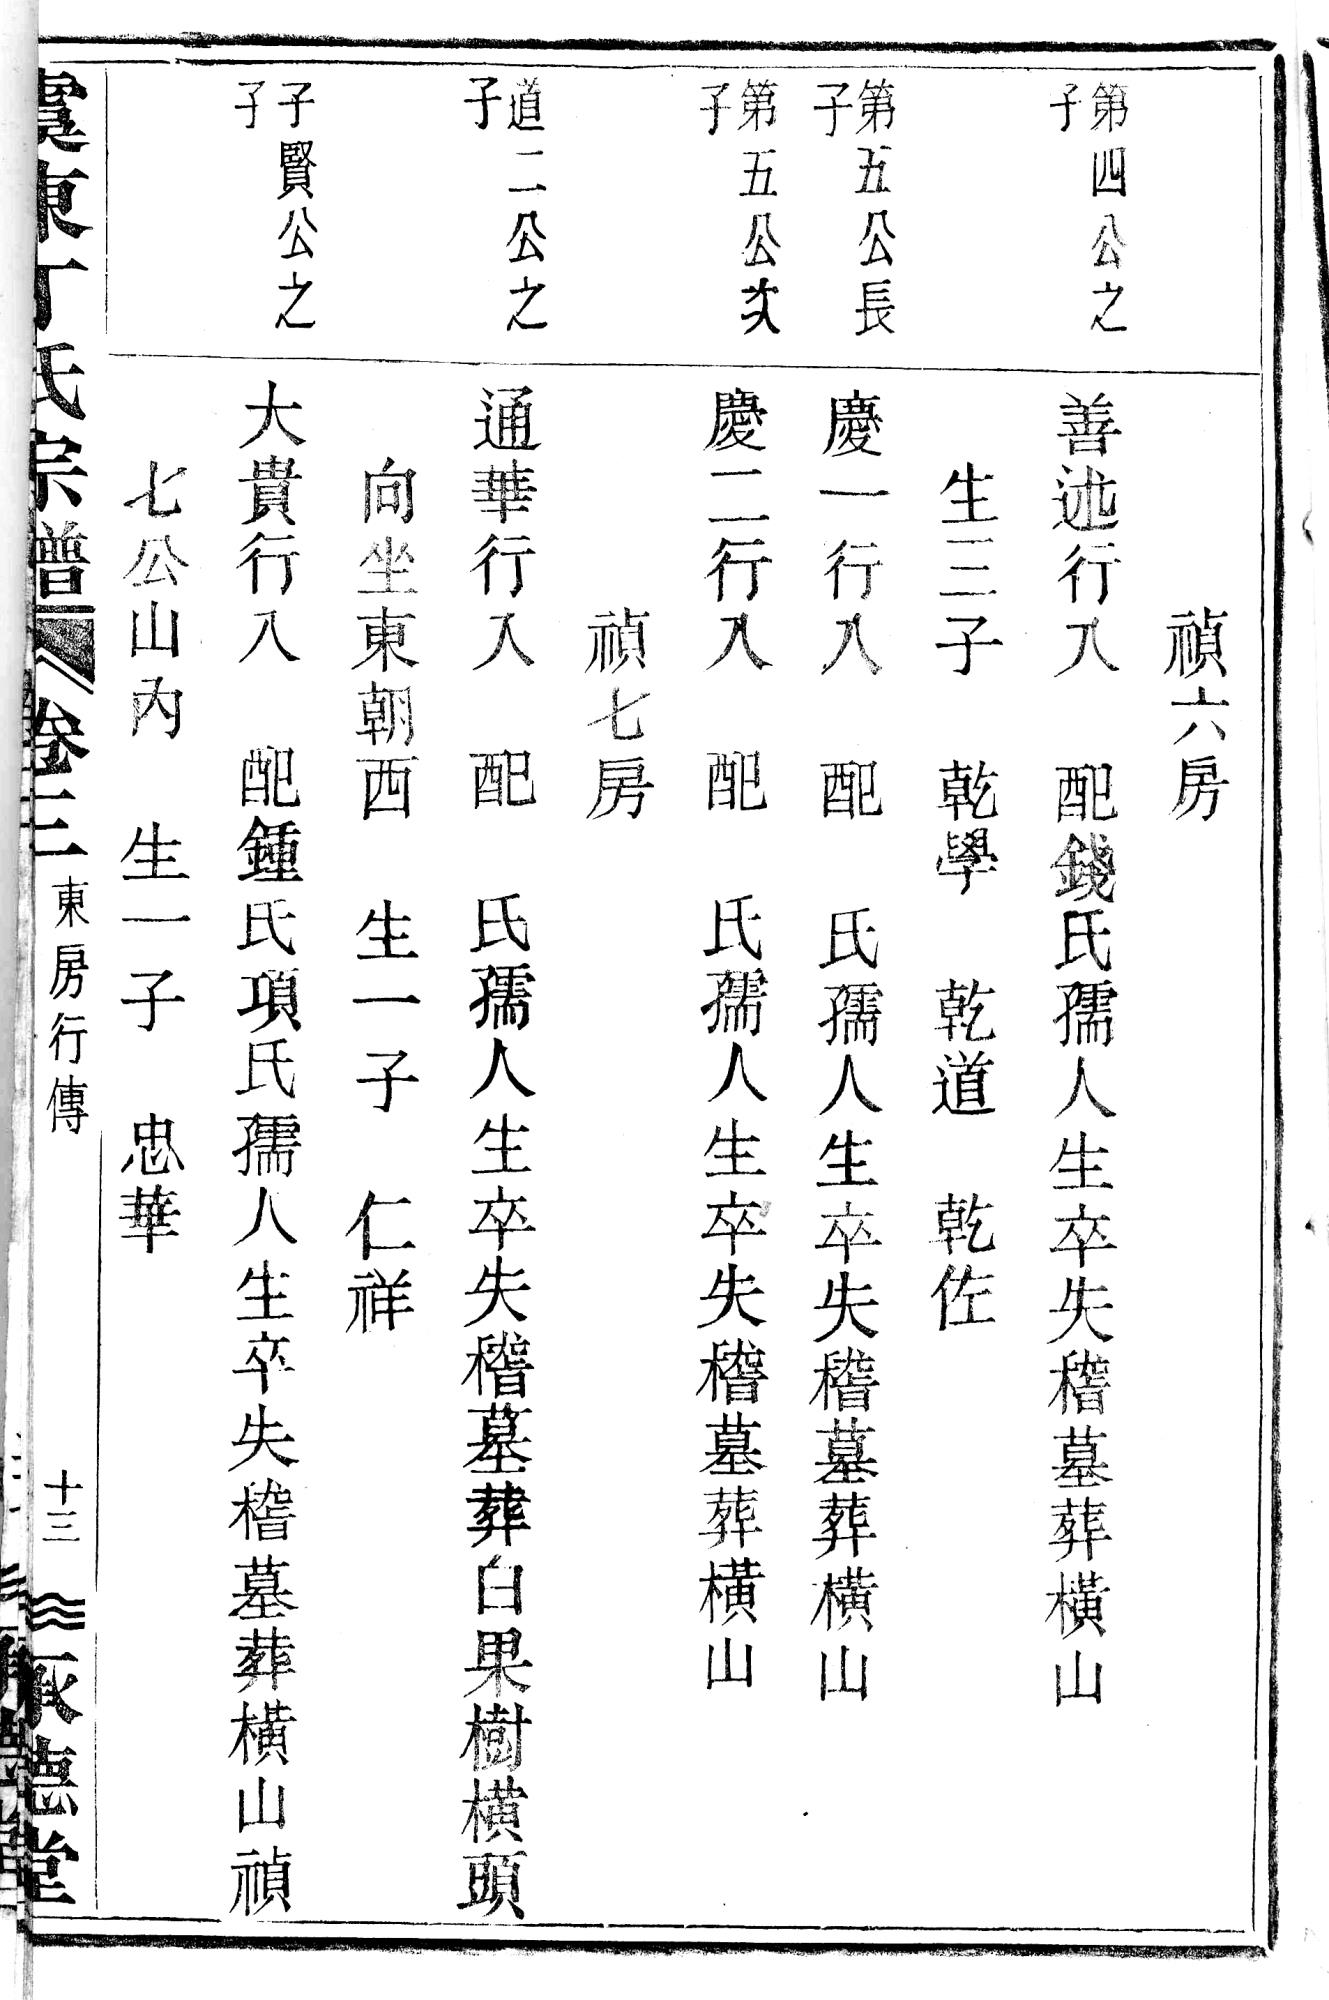 禎六房
第四公之
子
善述行八　配錢氏孺人生卒失稽墓葬橫山
生三子　乾學　乾道　乾佐
第五公長
子
慶一行八　配　氏孺人生卒失稽墓葬橫山
第五公次
子
慶二行八　配　氏孺人生卒失稽墓葬橫山
禎七房
道二公之
子
通華行八　配　氏孺人生卒失稽墓葬白果樹橫頭
向坐東朝西　生一子　仁祥
子賢公之
子
大貴行八　配鍾氏項氏孺人生卒失稽墓葬橫山禎
七公山內　生一子　忠華
虞東丁氏宗譜　卷三　東房行傳　十三　承德堂